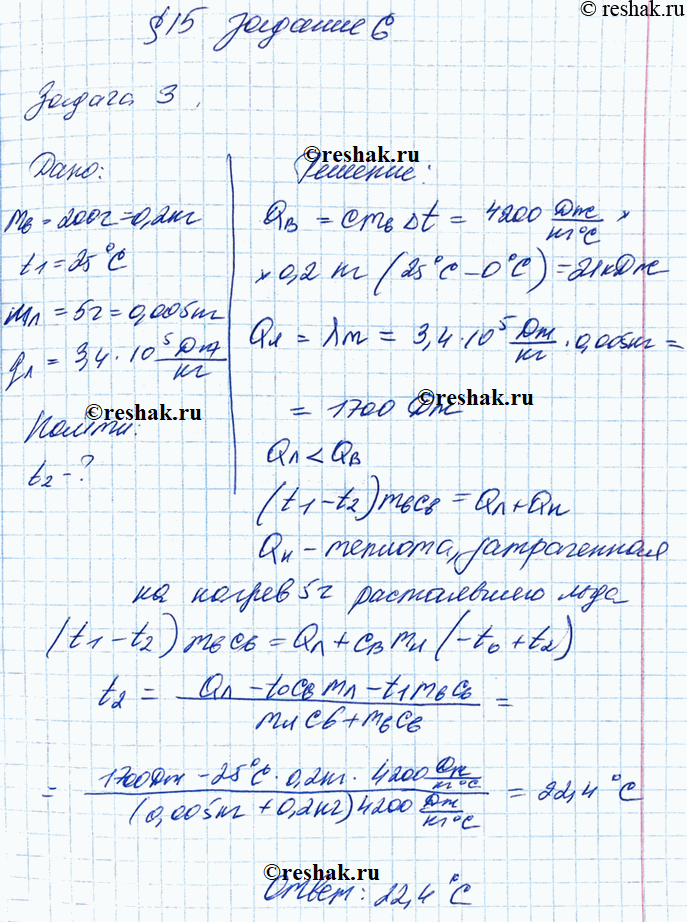 ©reshak.ru
§15 Задание 6
Задача 3.
Дано:
mв = 200г = 0,2кг
t1 = 25°C
mл = 5г = 0,005кг
qл = 3,4·10^5 Дж/кг
©reshak.ru
Найти:
t2 - ?
©reshak.ru
Решение:
Qв = cmвΔt = 4200 Дж/кг°C ×
× 0,2 кг (25°C - 0°C) = 21кДж
Qл = λm = 3,4·10^5 Дж/кг · 0,005кг =
= 1700 Дж
©reshak.ru
Qл < Qв
(t1 - t2) mвcв = Qл + Qн
Qн - теплота, затраченная
на нагрев 5г растаявшего льда
(t1 - t2) mвcв = Qл + cв mл (-t0 + t2)
t2 = Qл - t0cвmл - t1mвcв / mлcв + mвcв =
©reshak.ru
= 1700Дж - 25°C · 0,2кг · 4200 Дж/кг°C / (0,005кг + 0,2кг) 4200 Дж/кг°C = 22,4°C
©reshak.ru
Ответ: 22,4°C